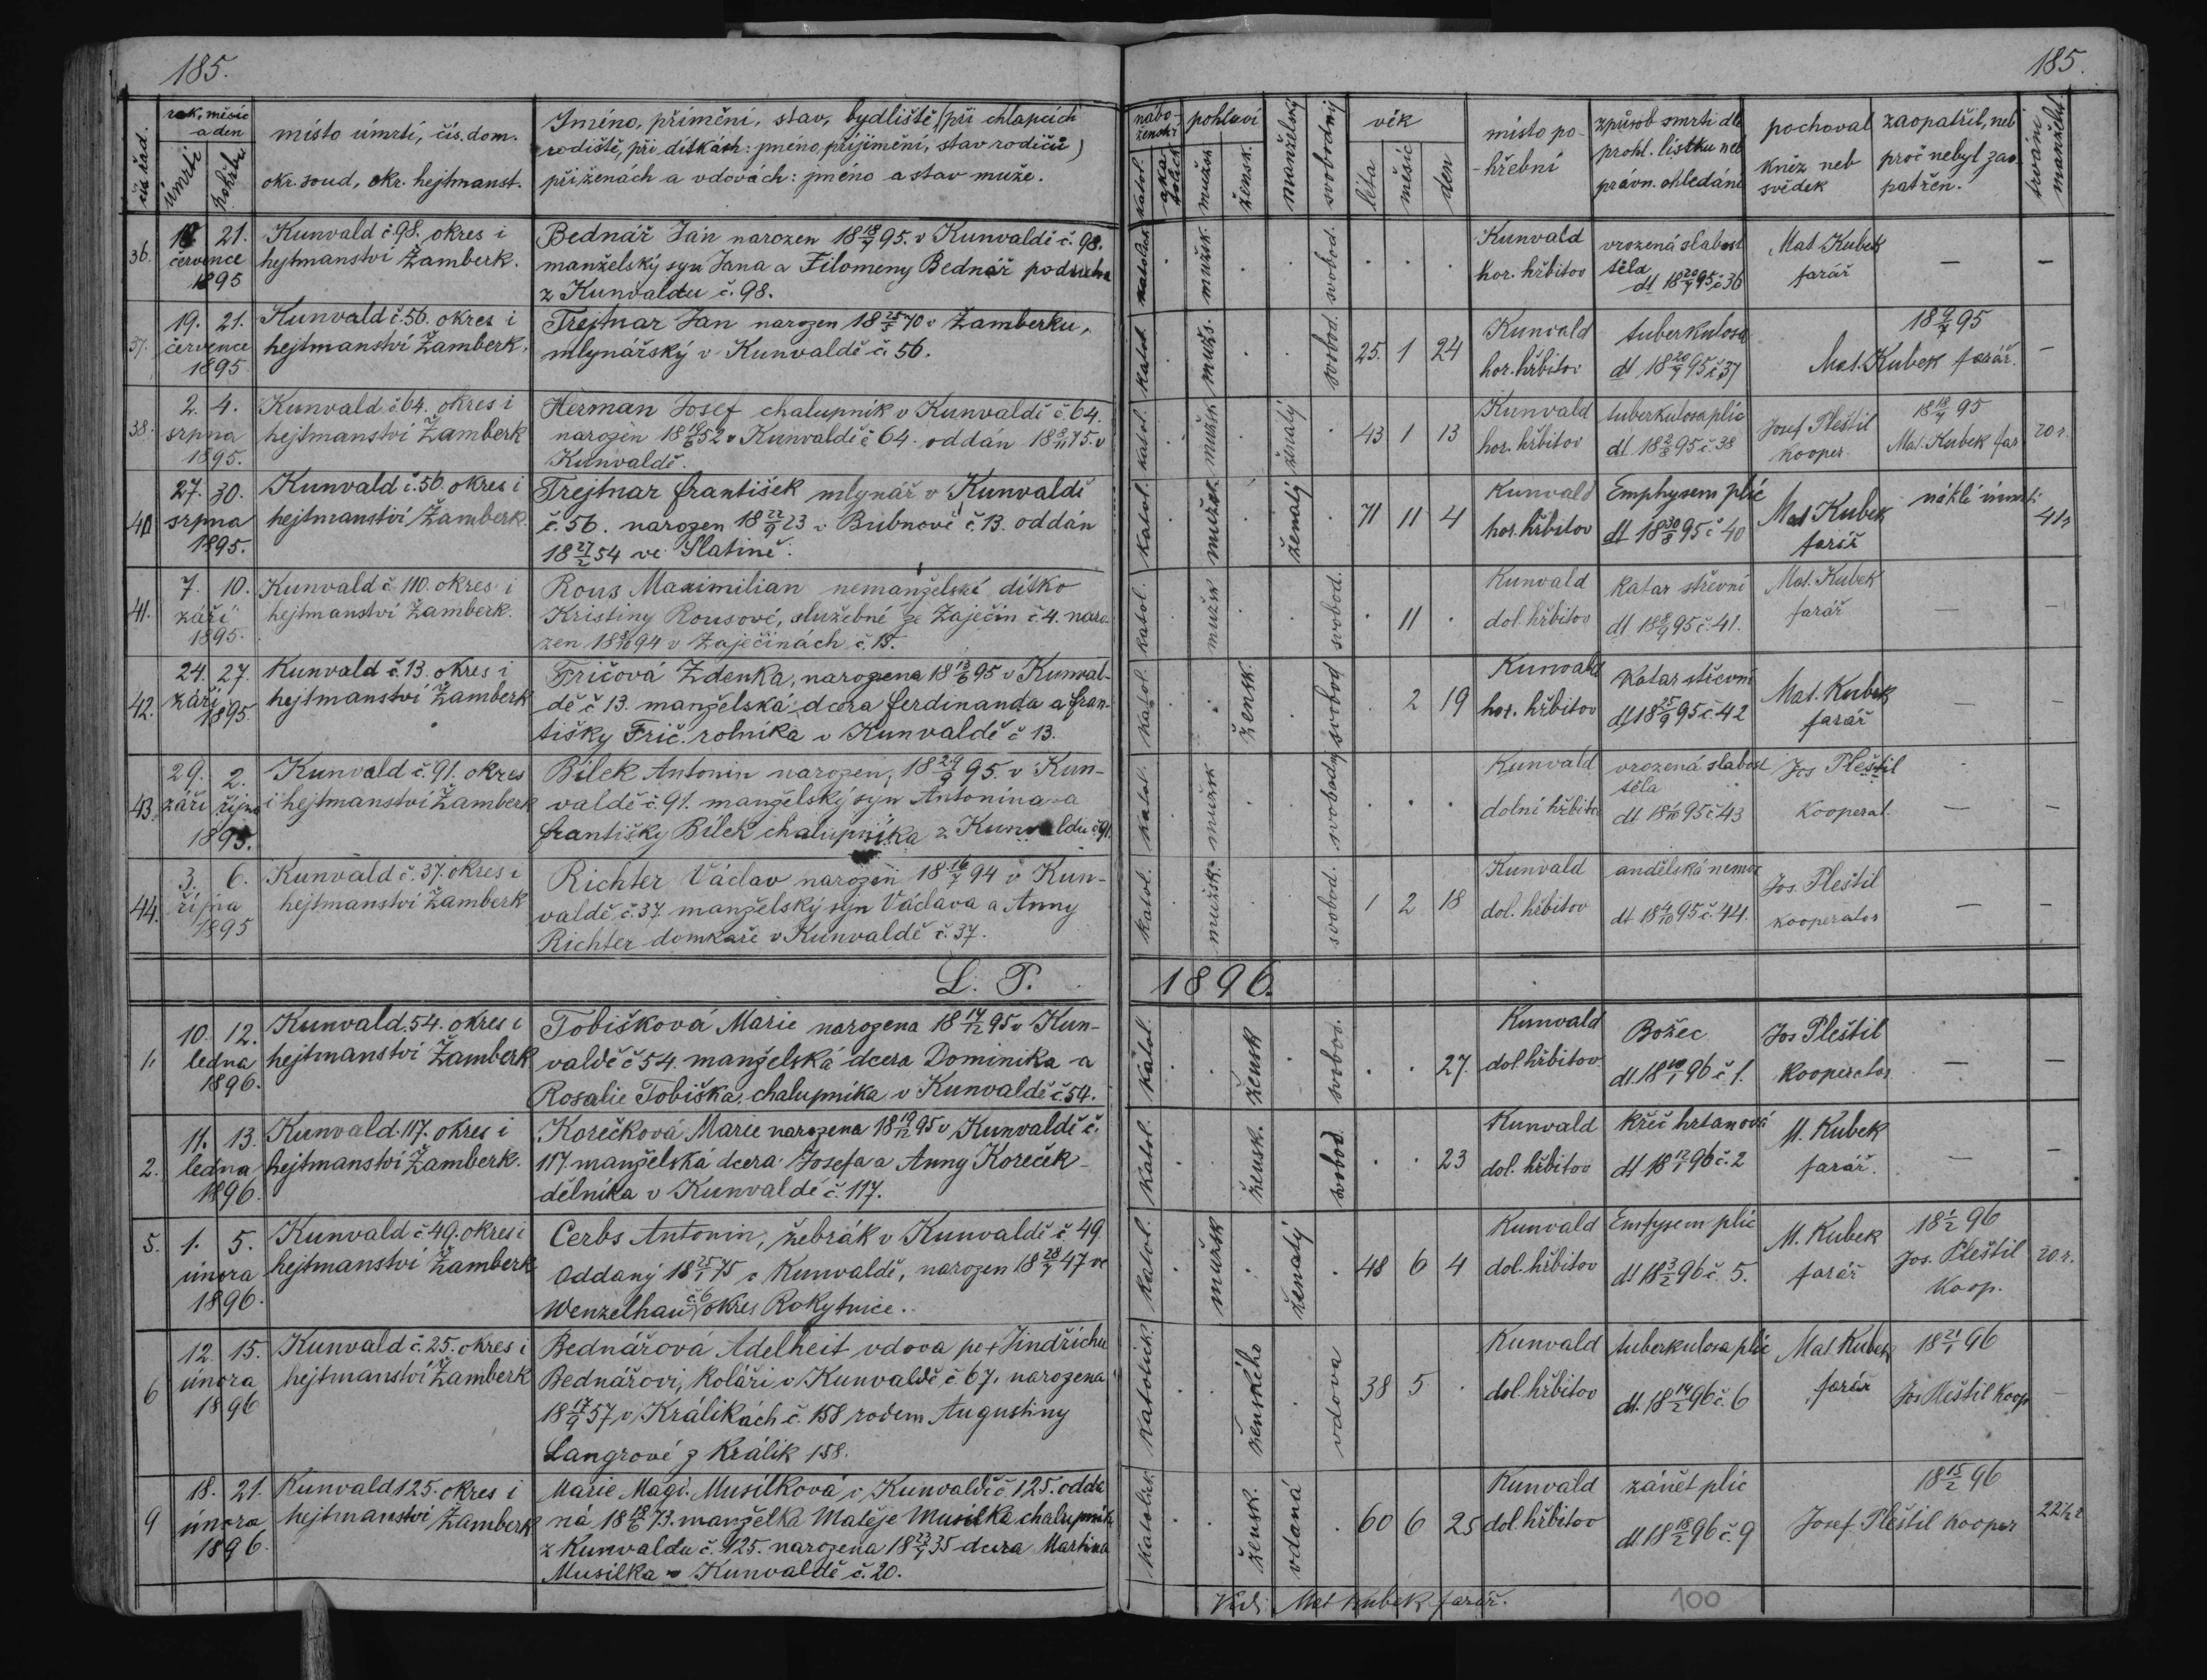 185.
185.
čís. řad.
rok, měsíc
a den
úmrtí
pohřbu
místo úmrtí, čís. dom.
okr. soud, okr. hejtmanst.
Jméno, příjmění, stav, bydliště (při chlapcích
rodiště, při dítkách: jméno, příjmění, stav rodičů)
při ženách a vdovách: jméno a stav muže.
nábo-
ženství
katol.
pohlaví
mužsk
žensk.
manželský
svobodný
věk
léta
měsíc
den
místo po-
hřební
způsob smrti dle
prohl. lístku neb
právn. ohledání
pochoval
kněz neb
svědek
zaopatřil, neb
proč nebyl zao-
patřen.
trvání
manželst.
36.
18 21.
července
1895
Kunvald č. 98. okres i
hejtmanství Žamberk.
Bednář Jan narozen 18 18/7 95. v Kunvaldě č. 98.
manželský syn Jana a Filomeny Bednář podruha
z Kunvaldu č. 98.
katolick mužsk. svobod.
Kunvald
hor. hřbitov
vrozená slabost
těla
dt 18 20/7 95 č 36
Mat. Kubek
farář
— —
37.
19. 21.
července
1895
Kunvald č. 56. okres i
hejtmanství Žamberk.
Trejtnar Jan narozen 18 25/5 70 v Žamberku,
mlynářský v Kunvaldě č. 56.
katol. mužs. svobod.
25. 1 24
Kunvald
hor. hřbitov
tuberkulosa
dt 18 20/7 95 č 37
18 9/7 95
Mat. Kubek farář.
—
38.
2. 4.
srpna
1895.
Kunvald č. 64. okres i
hejtmanství Žamberk
Heřman Josef chalupník v Kunvaldě č. 64.
narozen 18 19/6 52 v Kunvaldě č 64. oddán 18 9/11 75. v
Kunvaldě.
katol. mužsk ženatý
43 1 13
Kunvald
hor. hřbitov
tuberkulosa plic
dt 18 2/8 95 č. 38
Josef Pleštil
kooper.
18 18/7 95
Mat. Kubek far
20 r.
40
27. 30.
srpna
1895.
Kunvald č. 56. okres i
hejtmanství Žamberk.
Trejtnar František mlynář v Kunvaldě
č. 56. narozen 18 22/9 23 v Bubnově č. 13. oddán
18 27/2 54 ve Slatině.
katol. mužsk ženatý
71 11 4
Kunvald
hor. hřbitov
Emphysem plic
dt 18 30/8 95 č 40
Mat Kubek
farář
náhlé úmrtí
41 r
41.
7. 10.
září
1895.
Kunvald č. 110. okres i
hejtmanství Žamberk.
Rous Maximilian nemanželské dítko
Kristiny Rousové, služebné ze Zaječin č. 4. naro-
zen 18 8/10 94 v Zaječinách č. 15.
katol. mužsk svobod.
11
Kunvald
dol. hřbitov
Katar střevní
dt 18 8/9 95 č. 41.
Mat. Kubek
farář
— —
42.
24. 27.
září
1895.
Kunvald č. 13. okres i
hejtmanství Žamberk
Fričová Zdenka, narozena 18 13/6 95 v Kunval-
dě č 13. manželská dcera Ferdinanda a Fran-
tišky Frič. rolníka v Kunvaldě č 13.
katol. žensk. svobod
2 19
Kunvald
hor. hřbitov
Katar střevní
dt 18 25/9 95 č. 42
Mat. Kubek
farář
— —
43.
29. 2.
září října
1895.
Kunvald č. 91. okres
i hejtmanství Žamberk
Bílek Antonín narozen, 18 29/9 95. v Kun-
valdě č. 91. manželský syn Antonína a
Františky Bílek chalupníka z Kunvaldu č 91.
katol. mužsk svobodný
Kunvald
dolní hřbitov
vrozená slabost
těla
dt 18 1/10 95 č. 43
Jos Pleštil
kooperat.
— —
44.
3. 6.
října
1895
Kunvald č. 37. okres i
hejtmanství Žamberk
Richter Václav narozen 18 16/7 94 v Kun-
valdě, č. 37. manželský syn Václava a Anny
Richter domkaře v Kunvaldě č. 37.
katol. mužsk. svobod.
1 2 18
Kunvald
dol. hřbitov
andělská nemoc
dt 18 4/10 95 č. 44.
Jos. Pleštil
kooperator
— —
L. P. 1896.
1.
10. 12.
ledna
1896.
Kunvald. 54. okres i
hejtmanství Žamberk
Tobišková Marie narozena 18 14/12 95 v Kun-
valdě č 54. manželská dcera Dominika a
Rosalie Tobiška, chalupníka v Kunvaldě č. 54.
katol. žensk svobod.
27.
Kunvald
dol. hřbitov.
Božec
dt. 18 10/1 96 č. 1.
Jos Pleštil
kooperator
— —
2.
11. 13.
ledna
1896.
Kunvald. 117. okres i
hejtmanství Žamberk.
Korečková Marie narozena 18 19/12 95 v Kunvaldě č.
117. manželská dcera Josefa a Anny Koreček
dělníka v Kunvaldě č. 117.
katol. žensk. svobod.
23
Kunvald
dol. hřbitov
křeč hrtanová
dt 18 12/1 96 č. 2
M. Kubek
farář.
— —
5.
1. 5.
února
1896.
Kunvald č. 49. okres i
hejtmanství Žamberk
Cerbs Antonín, žebrák v Kunvaldě č. 49
Oddaný 18 25/1 75 v Kunvaldě, narozen 18 28/7 47 ve
Wenzelhau č. 6 okres Rokytnice.
katol. mužsk ženatý
48 6 4
Kunvald
dol. hřbitov
Emfysem plic
dt 18 3/2 96 č. 5.
M. Kubek
farář
18 1/2 96
Jos. Pleštil
koop.
20 r.
6
12. 15.
února
1896
Kunvald č. 25. okres i
hejtmanství Žamberk
Bednářová Adelheit vdova po + Jindřichu
Bednářovi, koláři v Kunvaldě č. 67. narozena
18 17/9 57 v Králikách č. 158 rodem Augustiny
Langrové z Králik 158.
katolick. ženského vdova
38 5
Kunvald
dol. hřbitov
tuberkulosa plic
dt. 18 14/2 96 č. 6
Mat Kubek
farář
18 21/1 96
Jos Pleštil koop
—
9
18. 21.
února
1896.
Kunvald 125. okres i
hejtmanství Žamberk
Marie Magd. Musílková v Kunvaldě č. 125. odda
ná 18 18/6 73. manželka Matěje Musílka chalupníka
z Kunvaldu č. 125. narozena 18 23/7 35 dcera Martina
Musílka v Kunvaldě č. 20.
katolick. žensk. vdaná
60 6 25
Kunvald
dol. hřbitov
zánět plic
dt. 18 18/2 96 č. 9
18 15/2 96
Josef Pleštil kooper
22 1/2 r
Vidi Mat Kubek farář.
100